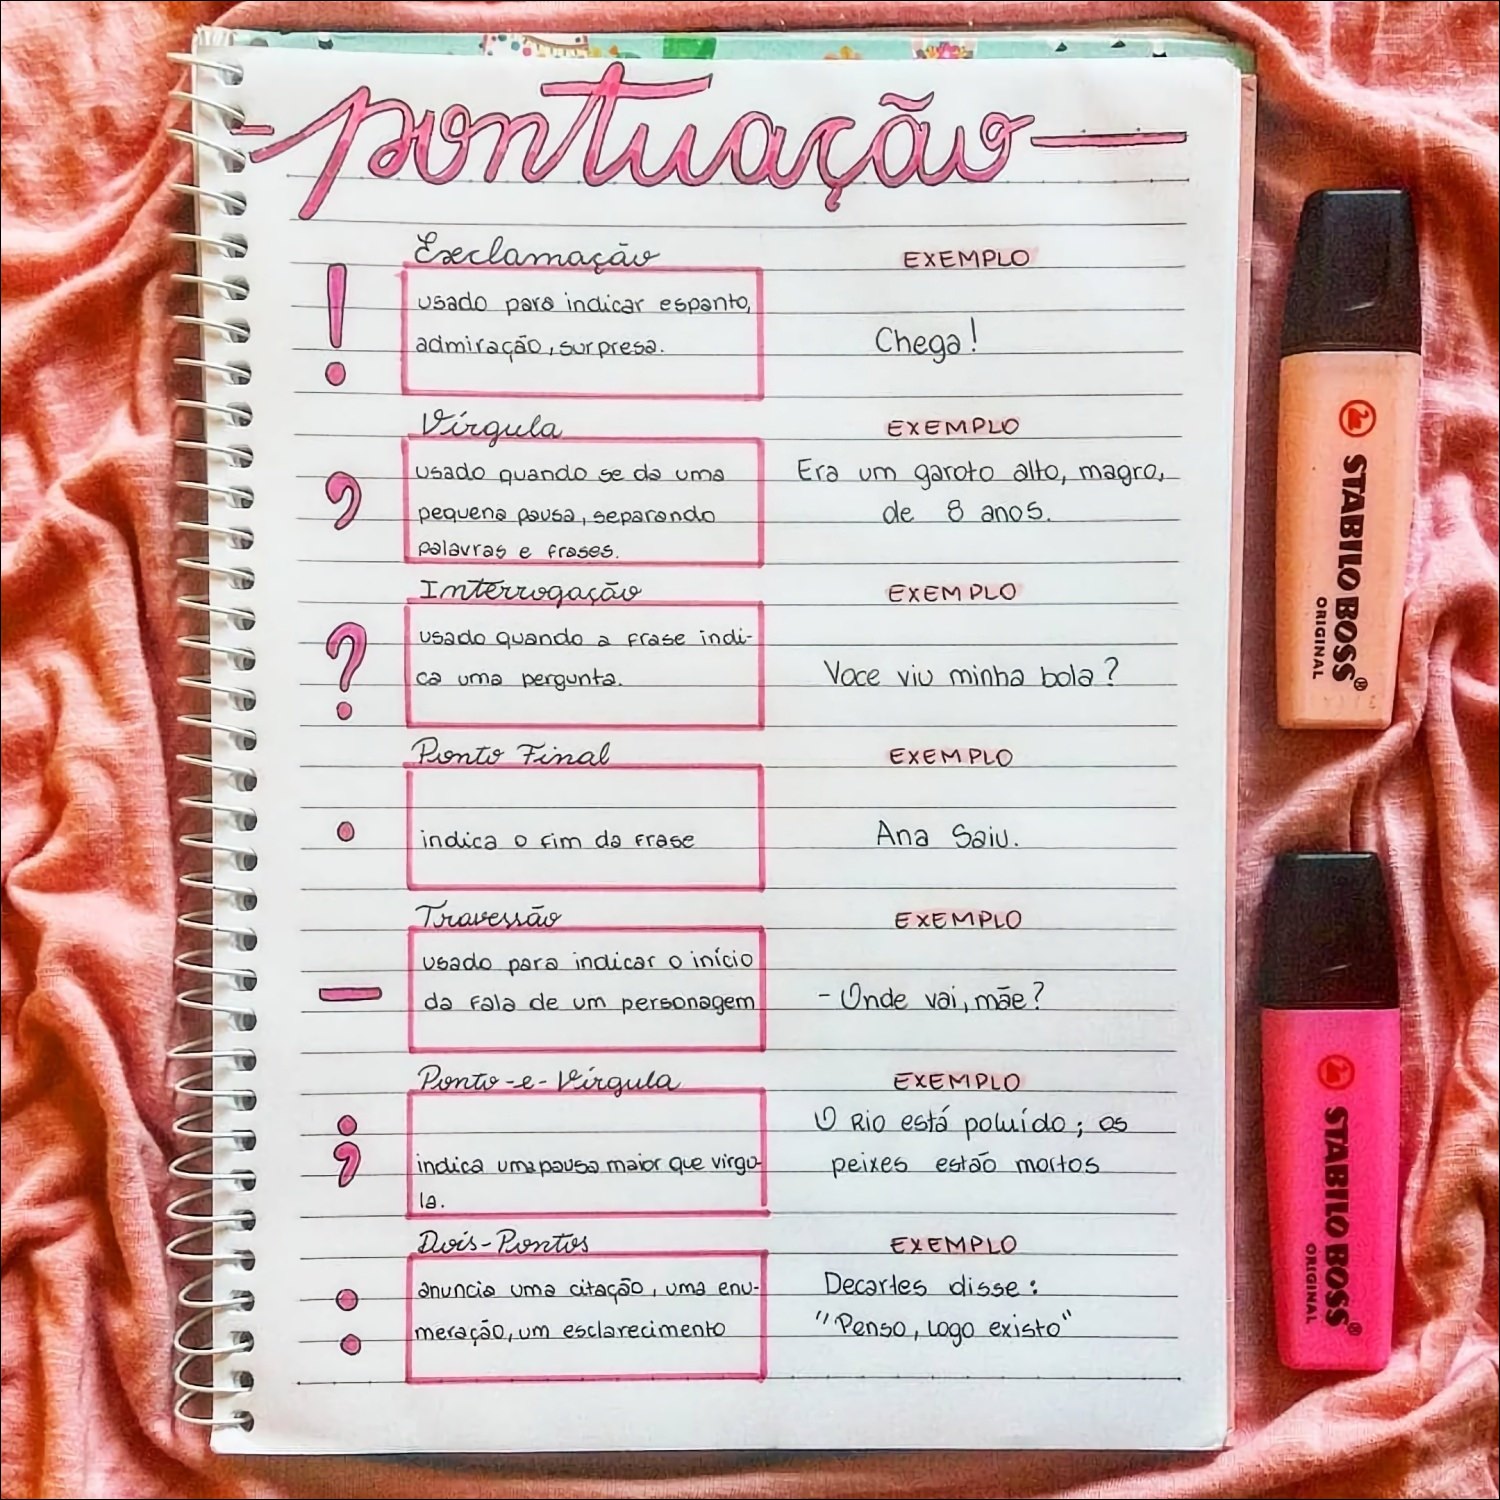 pontuação
Exclamação
EXEMPLO
usado para indicar espanto,
admiração, surpresa.
Chega!
Vírgula
EXEMPLO
usado quando se da uma
pequena pausa, separando
palavras e frases.
Era um garoto alto, magro,
de 8 anos.
Interrogação
EXEMPLO
usado quando a frase indi-
ca uma pergunta.
Voce viu minha bola?
Ponto Final
EXEMPLO
indica o fim da frase
Ana Saiu.
Travessão
EXEMPLO
usado para indicar o início
da fala de um personagem
- Onde vai, mãe?
Ponto-e-Vírgula
EXEMPLO
indica uma pausa maior que virgu-
la.
O Rio está poluído; os
peixes estão mortos
Dois-Pontos
EXEMPLO
anuncia uma citação, uma enu-
meração, um esclarecimento
Decartes disse:
"Penso, logo existo"
STABILO BOSS®
ORIGINAL
STABILO BOSS®
ORIGINAL